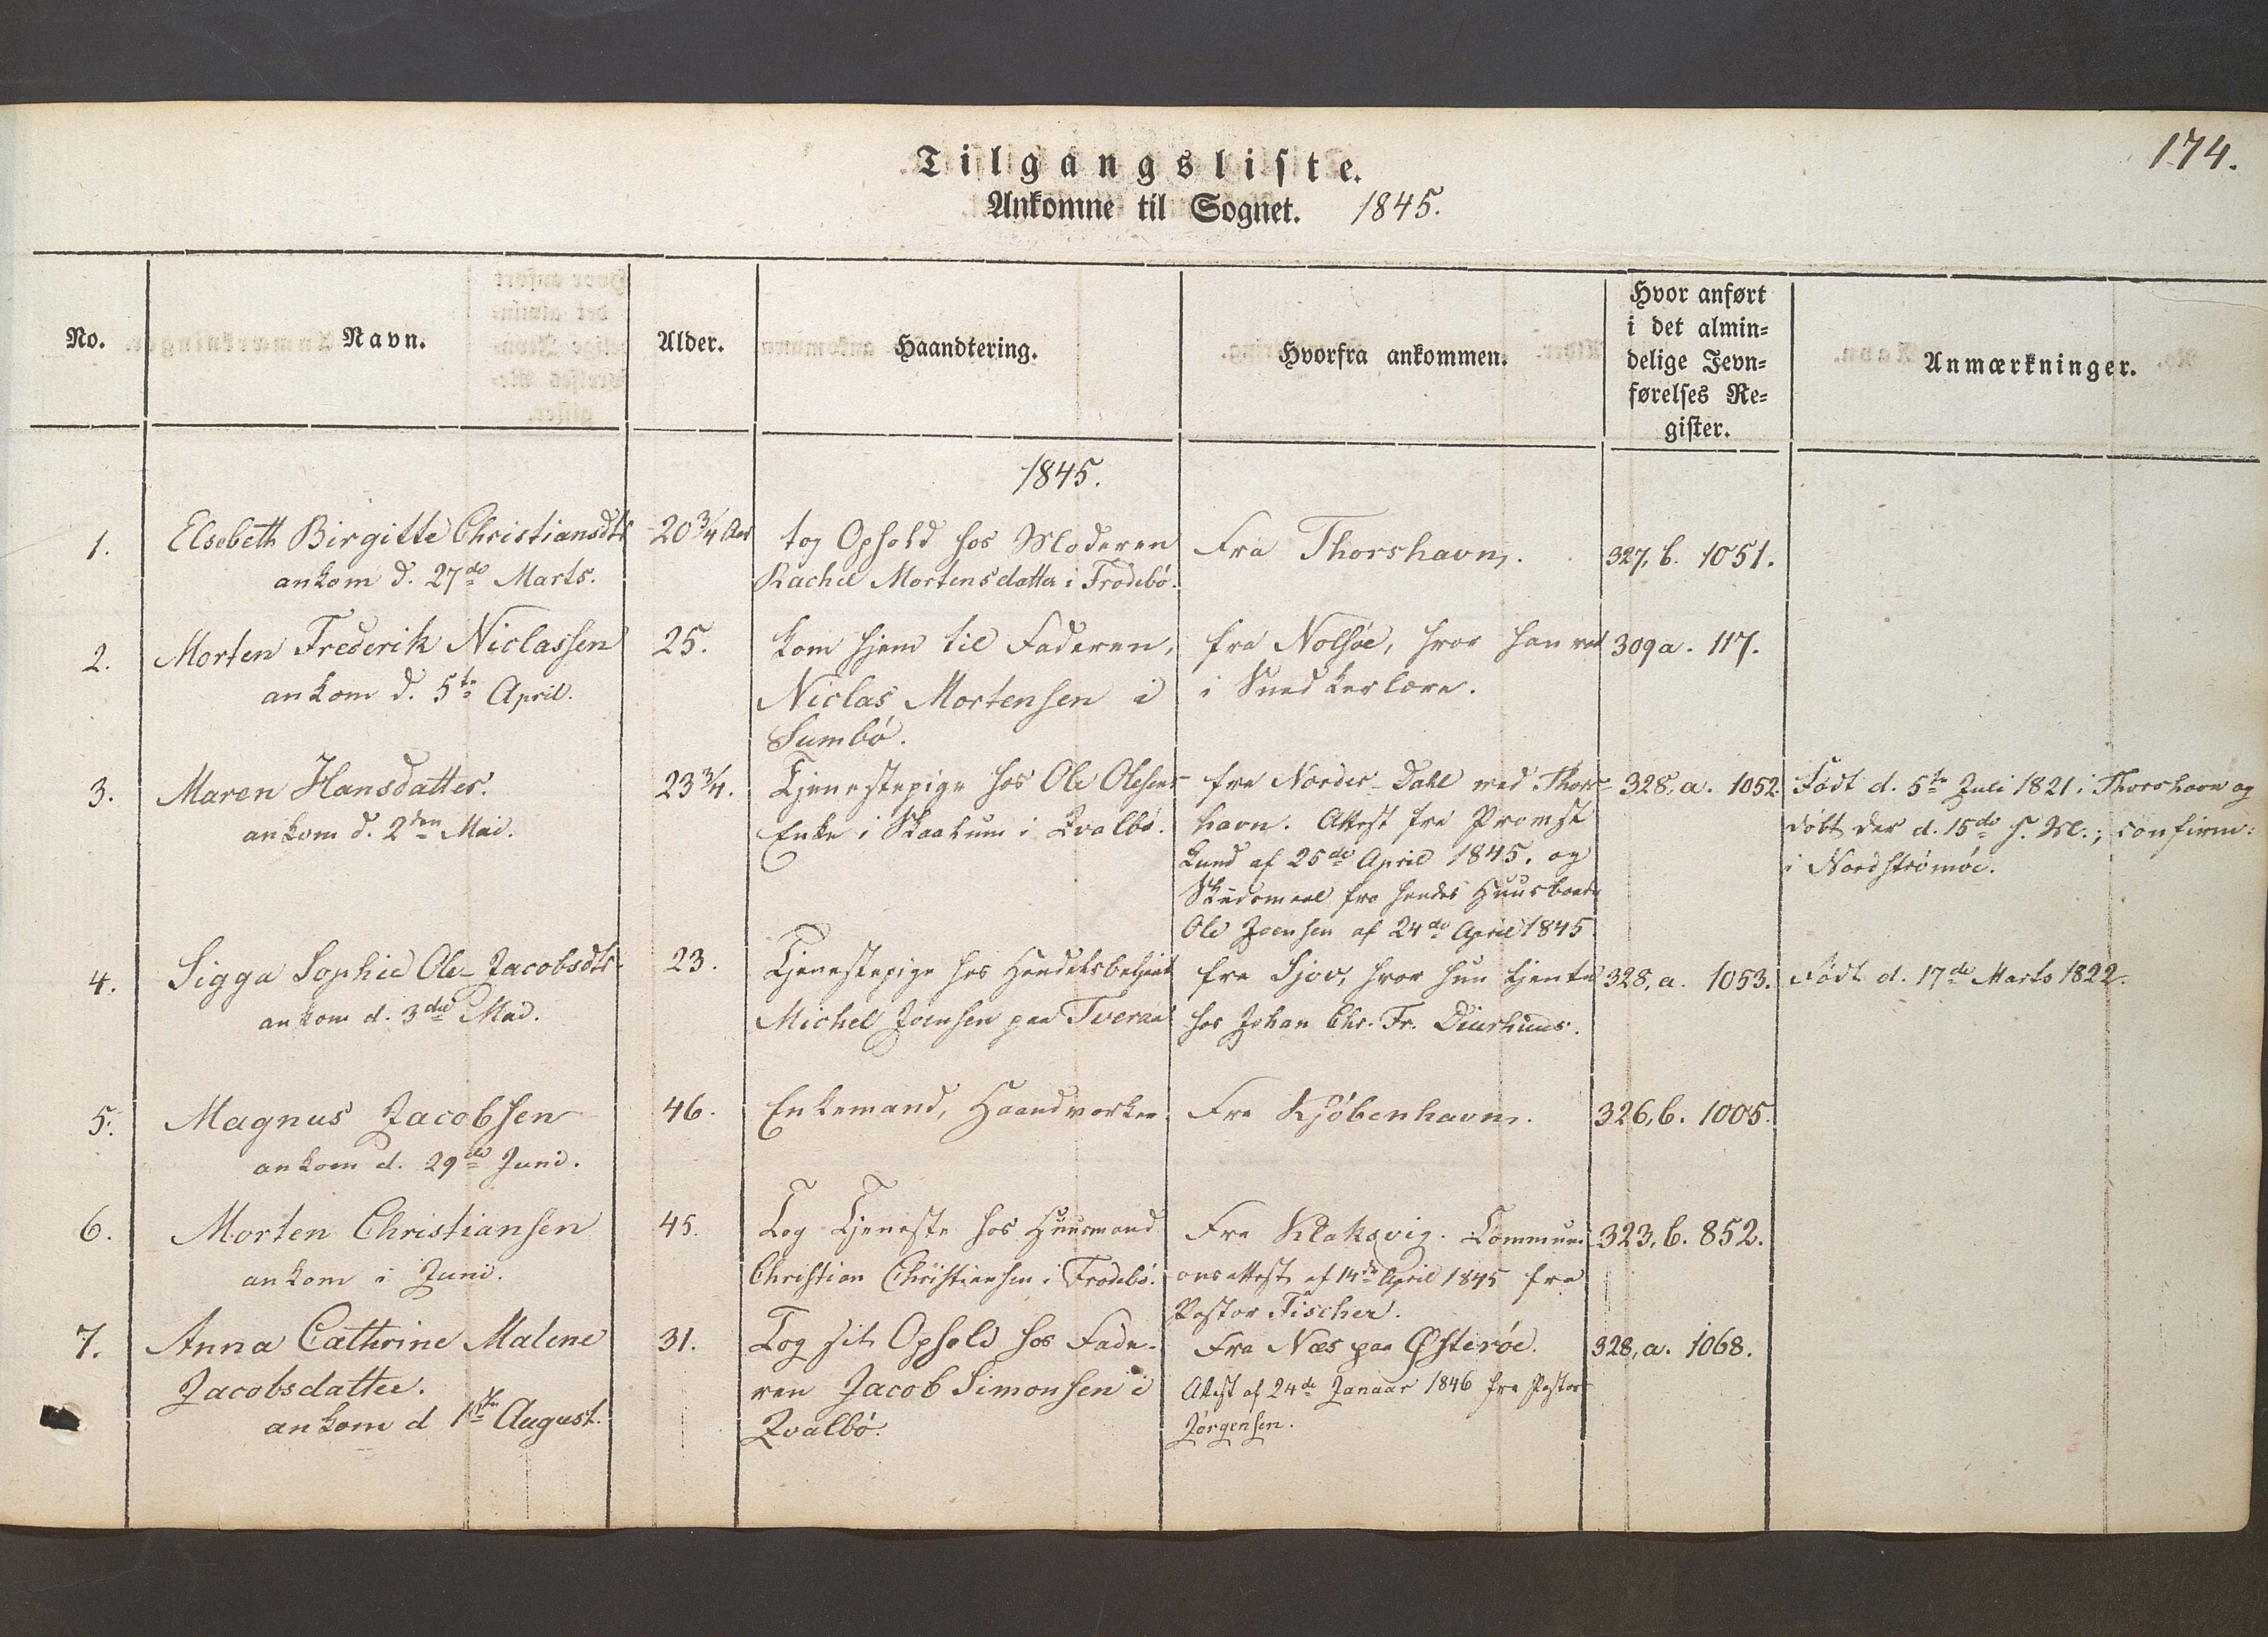 174.
Tilgangsliste.
Ankomne til Sognet. 1845.
No.
Navn.
Alder.
Haandtering.
Hvorfra ankommen.
Hvor anført
i det almin=
delige Jevn=
førelses Re=
gister.
Anmærkninger.
1845.
1.
Elsebeth Birgitte Christiansdtr
ankom d. 27de Marts.
20 3/4 Aar
tog Ophold hos Moderen
Rachel Mortensdatter i Frodebö.
Fra Thorshavn.
327, b. 1051.
2.
Morten Frederik Niclassen
ankom d. 5te April.
25.
kom hjem til Faderen,
Niclas Mortensen i
Sumbö.
fra Nolsöe, hvor han var
i Snedkerlære.
309a. 117.
3.
Maren Hansdatter.
ankom d. 2den Mai.
23 3/4.
Tjenestepige hos Ole Olesens
Enke i Skaahum i Qvalbö.
fra Norder-Dahl ved Thors-
havn. Attest fra Provst
Lund af 25de April 1845. og
Skudsmaal fra hendes Huusbonde
Ole Joensen af 24de April 1845
328, a. 1052.
Födt d. 5te Juli 1821 i Thorshavn og
döbt der d. 15de s. M.; confirm:
i Nordströmöe.
4.
Sigga Sophie Ole-Jacobsdtr
ankom d. 3die Mai.
23.
Tjenestepige hos Handelsbetjent
Michel Joensen paa Tveraa
fra Sjov, hvor hun tjente
hos Johan Chr. Fr. Diurhuus.
328, a. 1053.
Födt d. 17de Marts 1822.
5.
Magnus Jacobsen
ankom d. 29de Juni.
46.
Enkemand, Haandværker.
Fra Kjöbenhavn.
326, b. 1005.
6.
Morten Christiansen
ankom i Juni.
45.
Tog Tjeneste hos Huusmand
Christian Christiansen i Frodebö.
Fra Klaksvig. Communi-
onsattest af 14de April 1845 fra
Pastor Fischer.
323, b. 852.
7.
Anna Cathrine Malene
Jacobsdatter.
ankom d 1ste August.
31.
Tog sit Ophold hos Fade-
ren Jacob Simonsen i
Qvalbö.
Fra Næs paa Østeröe.
Attest af 24de Januar 1846 fra Pastor
Jörgensen.
328, a. 1068.